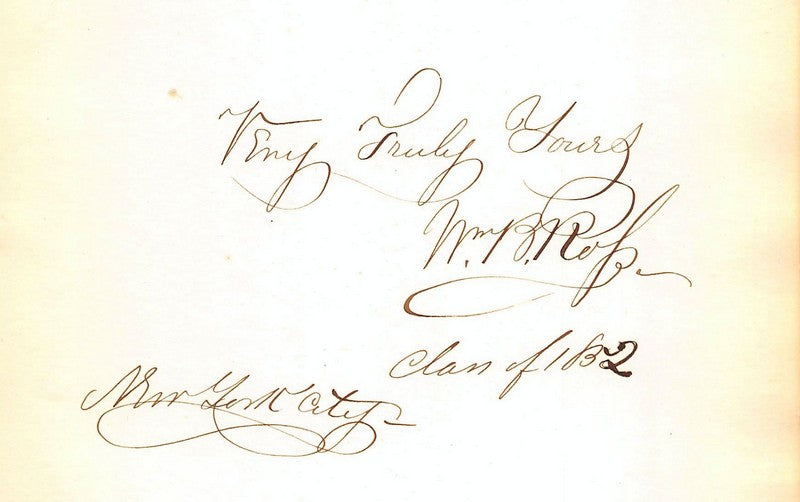 Very Truly Yours
Wm. B. Ross
Class of 1852
New York City